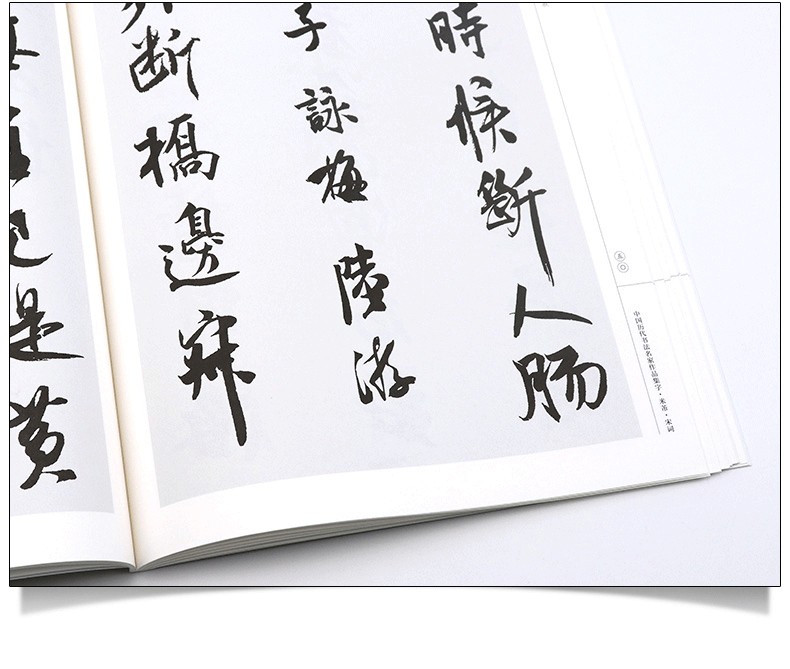 時候斷人肠
子 詠梅 陸游
断橋邊寂
已是黃
五〇
中国历代书法名家作品集字·米芾·宋词